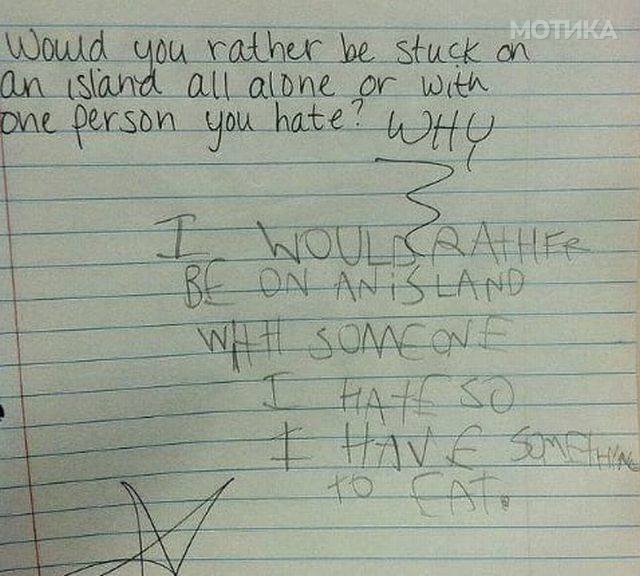 МОТИКА
Would you rather be stuck on
an island all alone or with
one person you hate? WHY
I WOULD RATHER
BE ON AN ISLAND
WITH SOMEONE
I HATE SO
I HAVE SOMETHING
TO EAT.